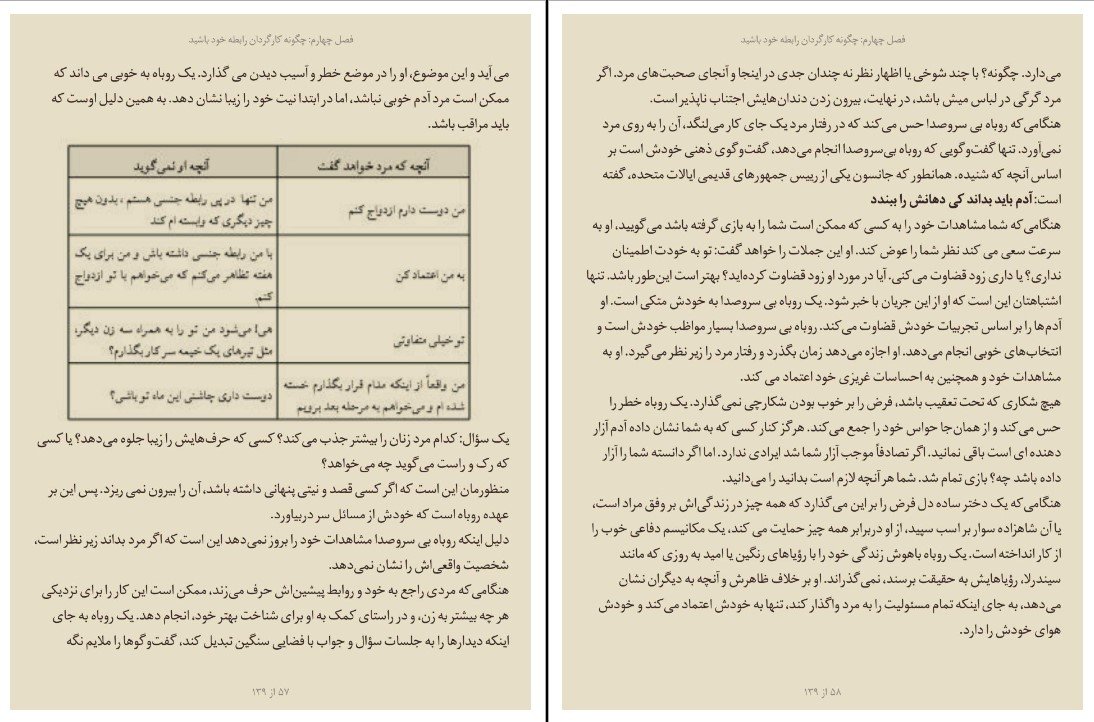 فصل چهارم: چگونه کارگردان رابطه خود باشید
می آید و این موضوع، او را در موضع خطر و آسیب دیدن می گذارد. یک روباه به خوبی می داند که
ممکن است مرد آدم خوبی نباشد، اما در ابتدا نیت خود را زیبا نشان دهد. به همین دلیل اوست که
باید مراقب باشد.
آنچه که مرد خواهد گفت
آنچه او نمی‌گوید
من دوست دارم ازدواج کنم
من تنها در پی رابطه جنسی هستم ، بدون هیچ
چیز دیگری که وابسته ام کند
به من اعتماد کن
با من رابطه جنسی داشته باش و من برای یک
هفته تظاهر می‌کنم که می‌خواهم با تو ازدواج
کنم.
تو خیلی متفاوتی
هی! می‌شود من تو را به همراه سه زن دیگر،
مثل تیرهای یک خیمه سر کار بگذارم؟
من واقعاً از اینکه مدام قرار بگذارم خسته
شده ام و می‌خواهم به مرحله بعد برویم
دوست داری چاشنی این ماه تو باشی؟
یک سؤال: کدام مرد زنان را بیشتر جذب می‌کند؟ کسی که حرف‌هایش را زیبا جلوه می‌دهد؟ یا کسی
که رک و راست می‌گوید چه می‌خواهد؟
منظورمان این است که اگر کسی قصد و نیتی پنهانی داشته باشد، آن را بیرون نمی ریزد. پس این بر
عهده روباه است که خودش از مسائل سر دربیاورد.
دلیل اینکه روباه بی سروصدا مشاهدات خود را بروز نمی‌دهد این است که اگر مرد بداند زیر نظر است،
شخصیت واقعی‌اش را نشان نمی‌دهد.
هنگامی‌که مردی راجع به خود و روابط پیشین‌اش حرف می‌زند، ممکن است این کار را برای نزدیکی
هر چه بیشتر به زن، و در راستای کمک به او برای شناخت بهتر خود، انجام دهد. یک روباه به جای
اینکه دیدارها را به جلسات سؤال و جواب با فضایی سنگین تبدیل کند، گفت‌وگوها را ملایم نگه
۵۷ از ۱۳۹
فصل چهارم: چگونه کارگردان رابطه خود باشید
می‌دارد. چگونه؟ با چند شوخی یا اظهار نظر نه چندان جدی در اینجا و آنجای صحبت‌های مرد. اگر
مرد گرگی در لباس میش باشد، در نهایت، بیرون زدن دندان‌هایش اجتناب ناپذیر است.
هنگامی‌که روباه بی سروصدا حس می‌کند که در رفتار مرد یک جای کار می‌لنگد، آن را به روی مرد
نمی‌آورد. تنها گفت‌وگویی که روباه بی‌سروصدا انجام می‌دهد، گفت‌وگوی ذهنی خودش است بر
اساس آنچه که شنیده. همانطور که جانسون یکی از رییس جمهورهای قدیمی ایالات متحده، گفته
است: آدم باید بداند کی دهانش را ببندد
هنگامی‌که شما مشاهدات خود را به کسی که ممکن است شما را به بازی گرفته باشد می‌گویید، او به
سرعت سعی می کند نظر شما را عوض کند. او این جملات را خواهد گفت: تو به خودت اطمینان
نداری؟ یا داری زود قضاوت می‌کنی. آیا در مورد او زود قضاوت کرده‌اید؟ بهتر است این‌طور باشد. تنها
اشتباهتان این است که او از این جریان با خبر شود. یک روباه بی سروصدا به خودش متکی است. او
آدم‌ها را بر اساس تجربیات خودش قضاوت می‌کند. روباه بی سروصدا بسیار مواظب خودش است و
انتخاب‌های خوبی انجام می‌دهد. او اجازه می‌دهد زمان بگذرد و رفتار مرد را زیر نظر می‌گیرد. او به
مشاهدات خود و همچنین به احساسات غریزی خود اعتماد می کند.
هیچ شکاری که تحت تعقیب باشد، فرض را بر خوب بودن شکارچی نمی‌گذارد. یک روباه خطر را
حس می‌کند و از همان‌جا حواس خود را جمع می‌کند. هرگز کنار کسی که به شما نشان داده آدم آزار
دهنده ای است باقی نمانید. اگر تصادفاً موجب آزار شما شد ایرادی ندارد. اما اگر دانسته شما را آزار
داده باشد چه؟ بازی تمام شد. شما هر آنچه لازم است بدانید را می‌دانید.
هنگامی‌که یک دختر ساده دل فرض را بر این می‌گذارد که همه چیز در زندگی‌اش بر وفق مراد است،
یا آن شاهزاده سوار بر اسب سپید، از او دربرابر همه چیز حمایت می کند، یک مکانیسم دفاعی خوب را
از کار انداخته است. یک روباه باهوش زندگی خود را با رؤیاهای رنگین یا امید به روزی که مانند
سیندرلا، رؤیاهایش به حقیقت برسند، نمی‌گذراند. او بر خلاف ظاهرش و آنچه به دیگران نشان
می‌دهد، به جای اینکه تمام مسئولیت را به مرد واگذار کند، تنها به خودش اعتماد می‌کند و خودش
هوای خودش را دارد.
۵۸ از ۱۳۹